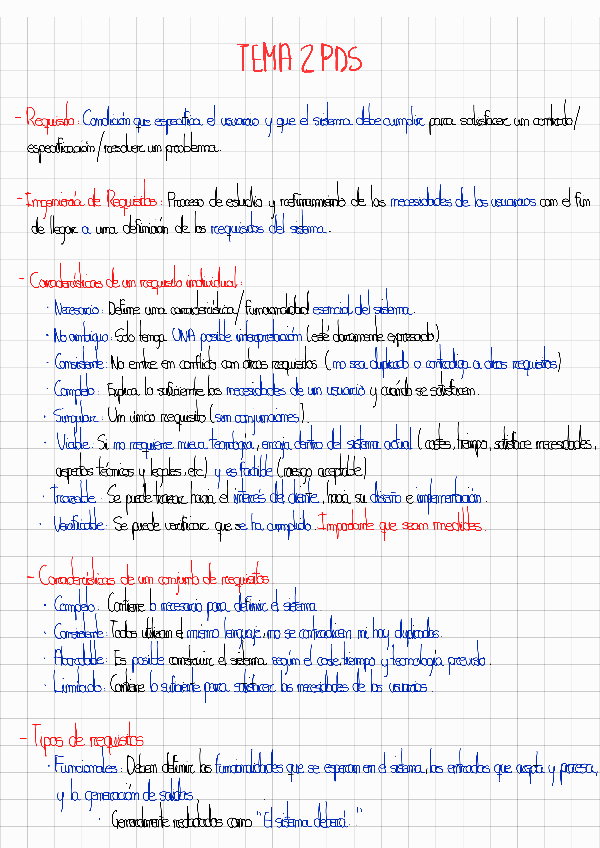 TEMA 2 PDS
- Requisito: Condición que especifica el usuario y que el sistema debe cumplir para satisfacer un contrato/
especificación/resolver un problema.
- Ingeniería de Requisitos: Proceso de estudio y refinamiento de las necesidades de los usuarios con el fin
de llegar a una definición de los requisitos del sistema.
- Características de un requisito individual:
· Necesario: Define una característica/funcionalidad esencial del sistema.
· No ambiguo: Solo tenga UNA posible interpretación (esté claramente expresado)
· Consistente: No entre en conflicto con otros requisitos (no sea duplicado o contradiga a otros requisitos)
· Completo: Explica lo suficiente las necesidades de un usuario y cuándo se satisfacen.
· Singular: Un único requisito (sin conjunciones).
· Viable: Si no requiere nueva tecnología, encaja dentro del sistema actual (costes, tiempo, satisface necesidades,
aspectos técnicos y legales, etc) y es factible (riesgo aceptable)
· Trazable: Se puede trazar hacia el interés del cliente, hacia su diseño e implementación.
· Verificable: Se puede verificar que se ha cumplido. Importante que sean medibles.
- Características de un conjunto de requisitos
· Completo: Contiene lo necesario para definir el sistema
· Consistente: Todos utilizan el mismo lenguaje, no se contradicen ni hay duplicados.
· Abordable: Es posible construir el sistema según el coste, tiempo y tecnología previsto.
· Limitado: Contiene lo suficiente para satisfacer las necesidades de los usuarios.
- Tipos de requisitos
· Funcionales: Deben definir las funcionalidades que se esperan en el sistema, las entradas que acepta y procesa,
y la generación de salidas.
· Generalmente redactados como "El sistema deberá..."